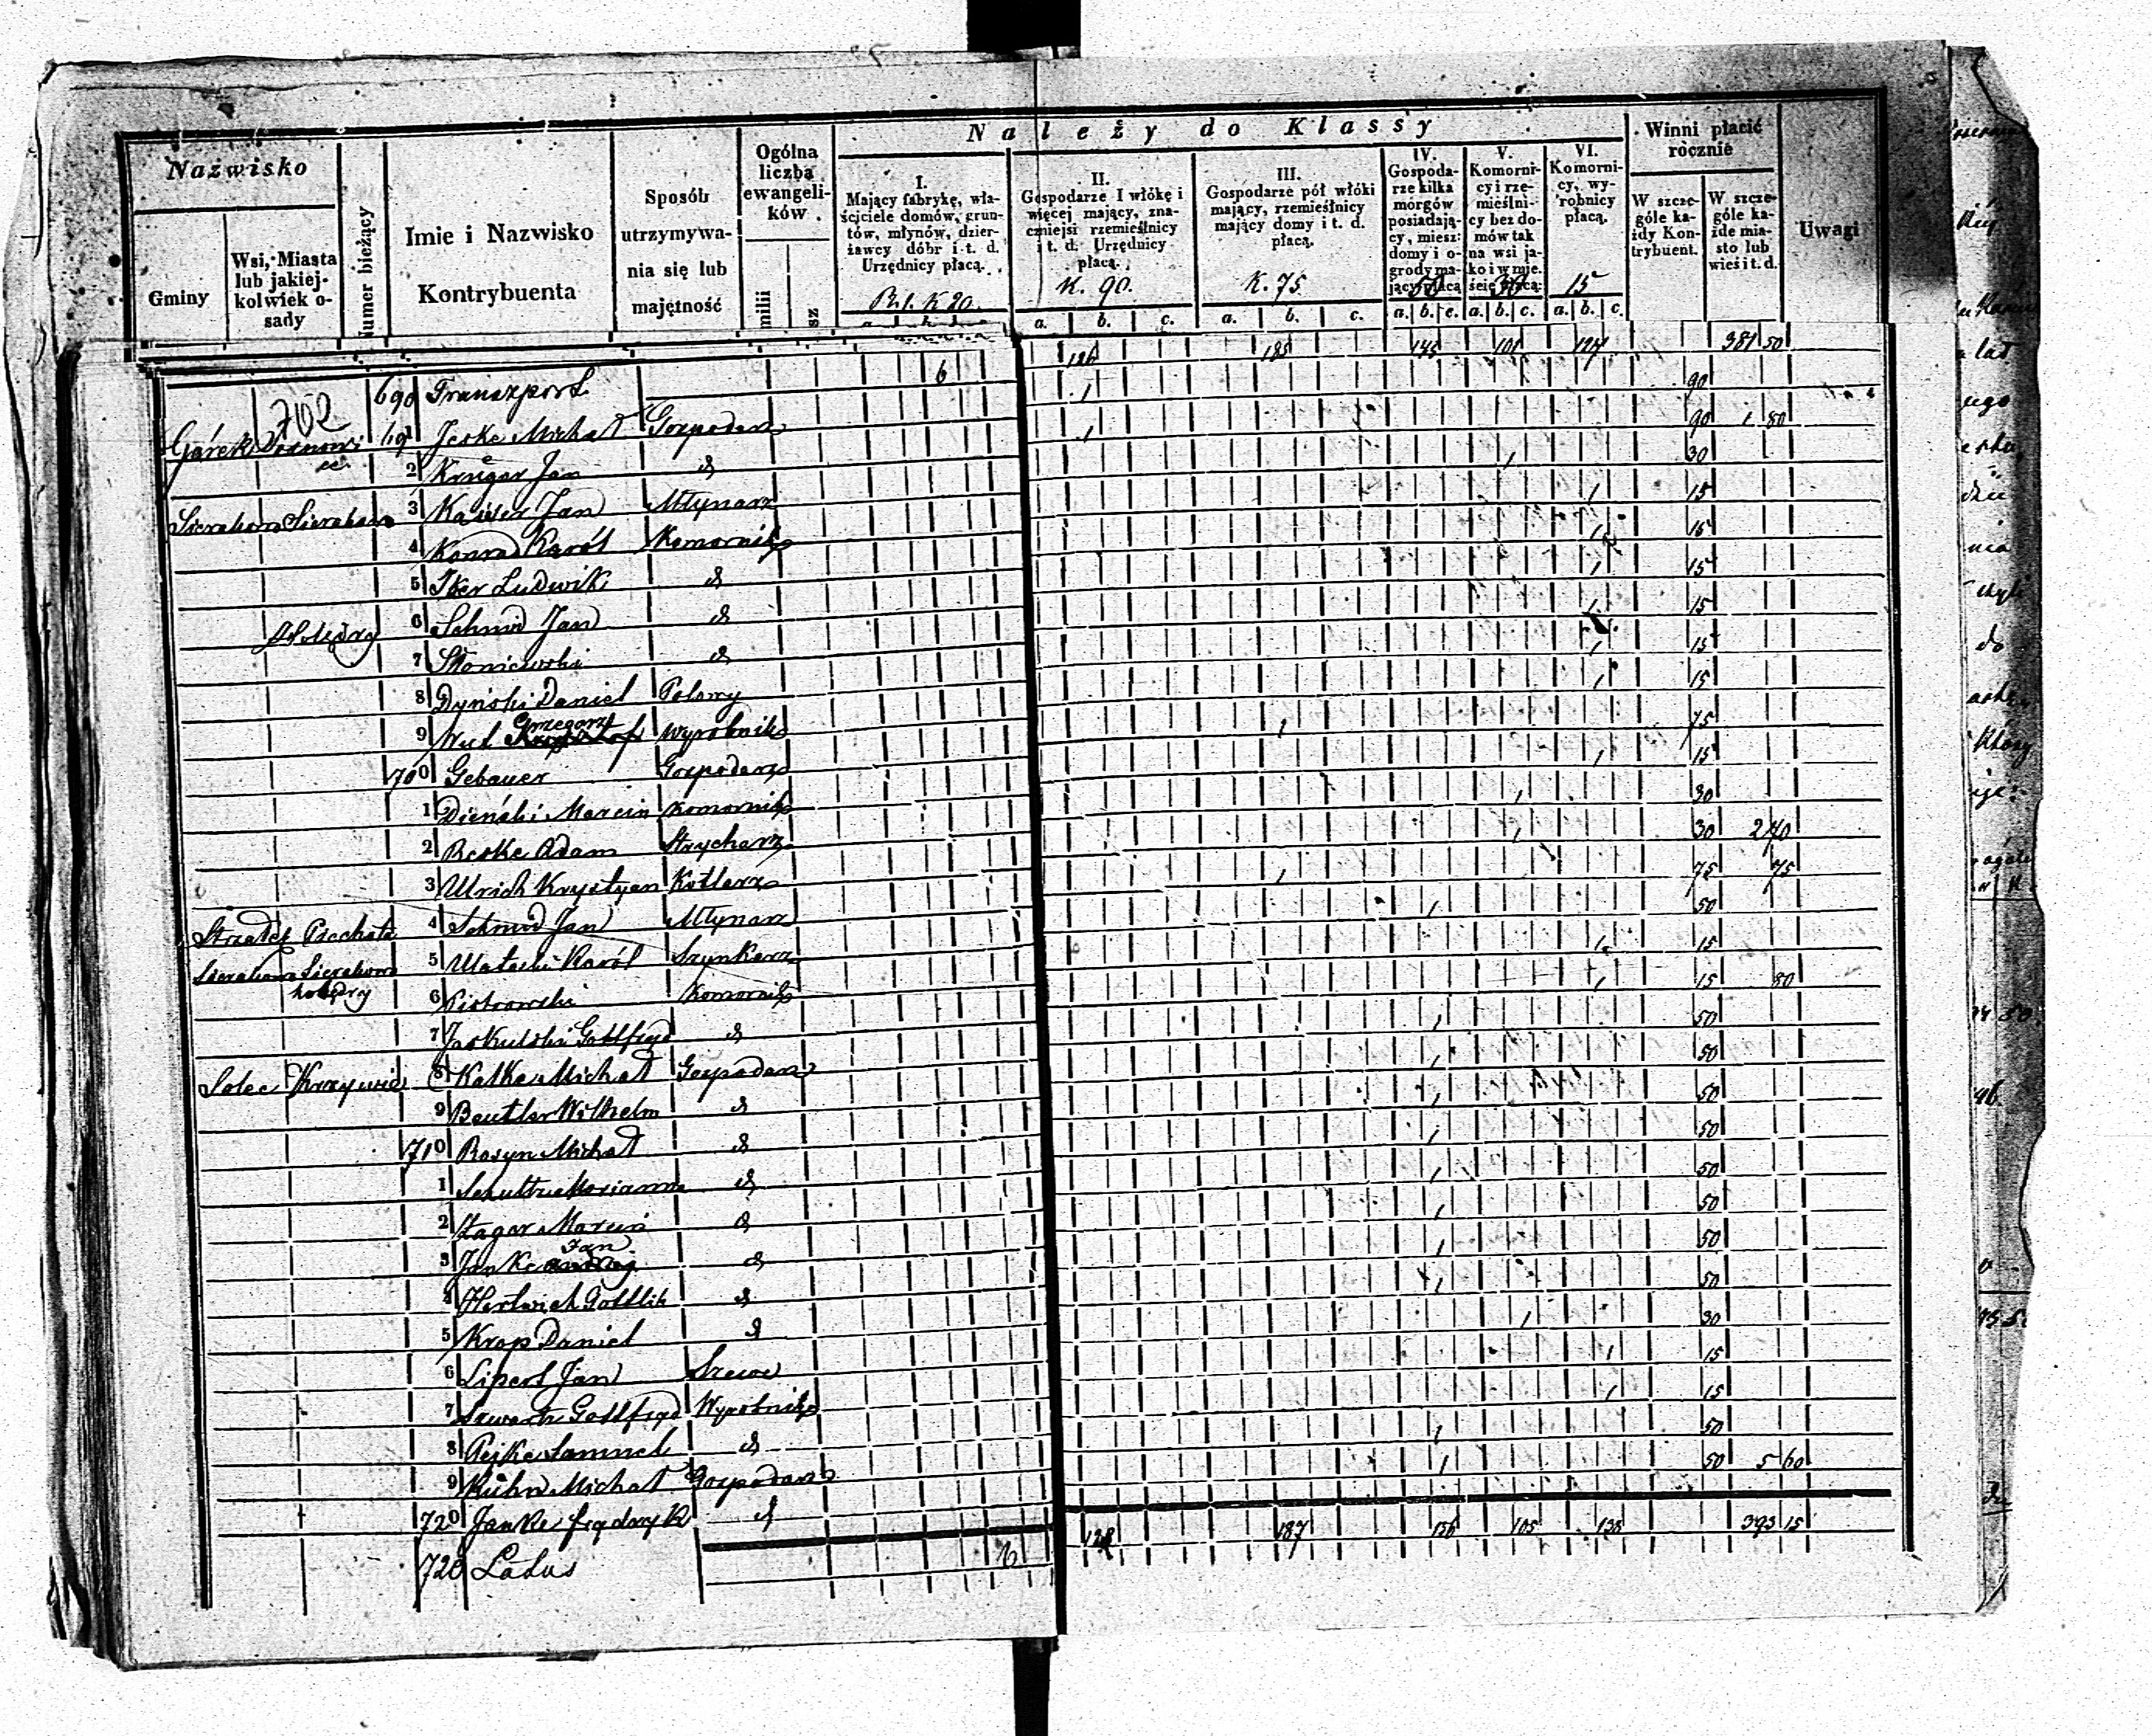 Należy do Klassy
Nazwisko
Gminy
Wsi, Miasta lub jakiejkolwiek osady
Numer bieżący
Imie i Nazwisko Kontrybuenta
Sposób utrzymywania się lub majętność
Ogólna liczba ewangelików
milii
sz
I. Mający fabrykę, właściciele domów, gruntów, młynów, dzierżawcy dóbr i t. d. Urzędnicy płacą. R. 1. K 20.
II. Gospodarze 1 włókę i więcej mający, znaczniejsi rzemieślnicy i t. d. Urzędnicy płacą. K. 90.
III. Gospodarze pół włóki mający, rzemieślnicy mający domy i t. d. płacą. K. 75
IV. Gospodarze kilka morgów posiadający, miesz: domy i ogrody mający płacą 50
V. Komornicy i rzemieślnicy bez domów tak na wsi jako i w mieście płacą: 30
VI. Komornicy, wyrobnicy płacą. 15
Winni płacić rocznie
W szczególe każdy Kontrybuent.
W szczególe każde miasto lub wieś i t. d.
Uwagi
a. b. c. a. b. c. a. b. c. a. b. c. a. b. c.
702
690 Transport 6 126 185 145 101 127 381 50
Górek 691 Jeske Michał Gospodarz 1 90
2 Krüger Jan d 1 90 1 80
Sierakow Sierakow 3 Kaiser Jan Młynarz 1 30
4 Konrad Karól Komornik 1 15
5 Iker Ludwik d 1 15
6 Schmid Jan d 1 15
7 Słoniewski d 1 15
8 Dyński Daniel Polowy 1 15
9 Grzegorz Wyrobnik 1 15
700 Gebauer Gospodarz 1 75
1 Dieński Marcin Komornik 1 15
2 Reske Adam Strycharz 1 30
3 Ulrich Krystyan Kotlarz 1 30 2 40
Strzałek Piechota 4 Schmid Jan Młynarz 1 75 75
Sierakow Sierakow 5 Karól Szynkarz 1 50
holędry 6 Piotrowski Komornik 1 15
7 Jaskulski Gottfryd d 1 15 80
Solec Krzywie 8 Kalke Michał Gospodarz 1 50
9 Beutler Wilhelm d 1 50
710 Rosyn Michał d 1 50
1 Schultz Marianna d 1 50
2 Zagar Marcin d 1 50
3 Janke Jan d 1 50
4 Hertwich Gottlib d 1 50
5 Krop Daniel d 1 50
6 Lipert Jan Szewc 1 30
7 Szwartz Gottfryd Wyrobnik 1 15
8 Pejke Samuel d 1 15
9 Kühn Michał Gospodarz 1 50
720 Janke frydryk d 1 50 5 60
720 Latus 6 128 187 156 105 138 393 15